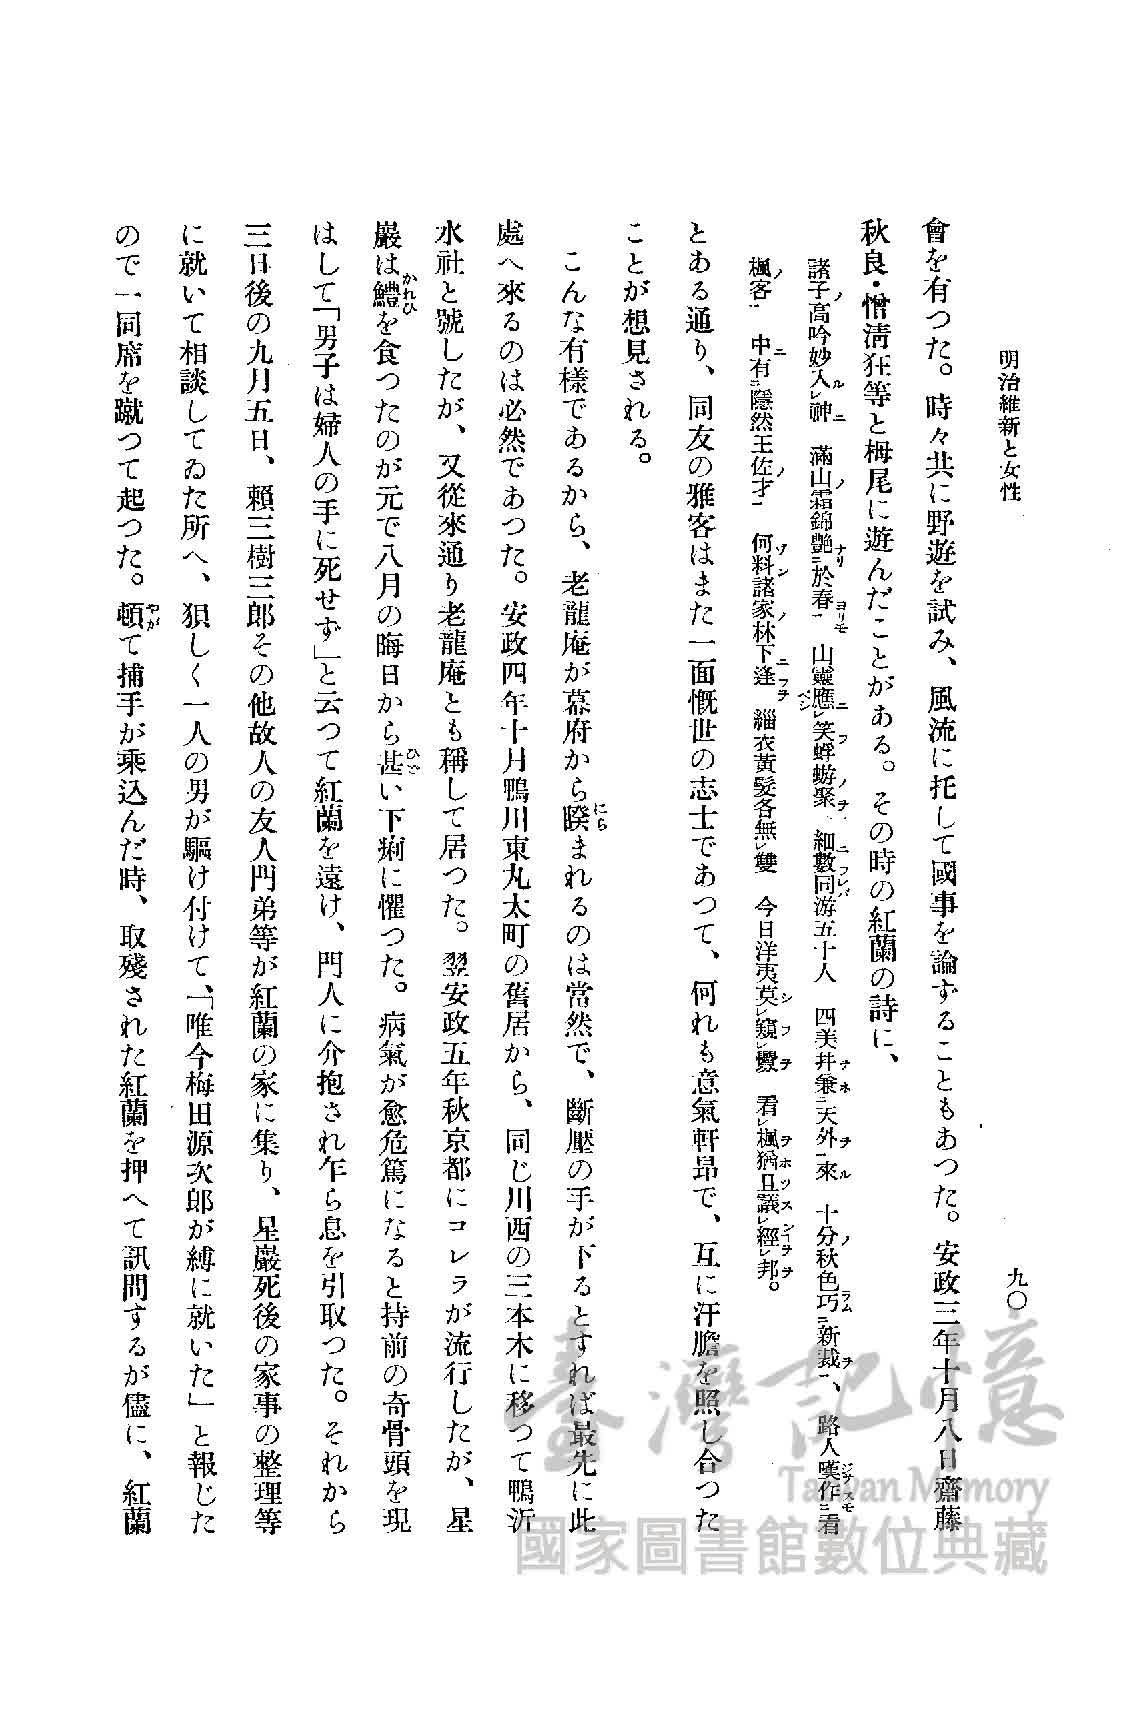 明治維新と女性
九〇
會を有つた。時々共に野遊を試み、風流に托して國事を論ずることもあつた。安政三年十月八日齋藤
秋良・僧淸狂等と栂尾に遊んだことがある。その時の紅蘭の詩に、
諸子ノ高吟妙ルニ入レ神ニ 滿山ノ霜錦艷ナリ二於春ヨリモ一 山靈應ベシニ レ笑フ蜉蝣ノ聚ヲ 細ニ數フレバ同游五十人 四美幷セ兼ネ二天外ヲ一來ル 十分ノ秋色巧ラム二新裁ヲ一、 路人嘆ジテ作スモ二看
楓ノ客一 中ニ有二隱然王佐ノ才一 何ゾ料ン諸家ノ林下ニ逢フヲ 緇衣黃髮各無レ雙 今日洋夷莫シレ窺フレ釁ヲ 看レ楓ヲ猶ホ且ツ議スレ經イヲレ邦ヲ。
とある通り、同友の雅客はまた一面慨世の志士であつて、何れも意氣軒昂で、互に汗膽を照し合つた
ことが想見される。
こんな有樣であるから、老龍庵が幕府から睽まれるのは當然で、斷壓の手が下るとすれば最先に此
處へ來るのは必然であつた。安政四年十月鴨川東丸太町の舊居から、同じ川西の三本木に移つて鴨沂
水社と號したが、又從來通り老龍庵とも稱して居つた。翌安政五年秋京都にコレラが流行したが、星
巖は鱧を食つたのが元で八月の晦日から甚い下痢に懼つた。病氣が愈危篤になると持前の奇骨頭を現
はして「男子は婦人の手に死せず」と云つて紅蘭を遠け、門人に介抱され乍ら息を引取つた。それから
三日後の九月五日、賴三樹三郎その他故人の友人門弟等が紅蘭の家に集り、星巖死後の家事の整理等
に就いて相談してゐた所へ、狽しく一人の男が驅け付けて、「唯今梅田源次郎が縛に就いた」と報じた
ので一同席を蹴つて起つた。頓て捕手が乘込んだ時、取殘された紅蘭を押へて訊問するが儘に、紅蘭
臺灣記憶
Taiwan Memory
國家圖書館數位典藏